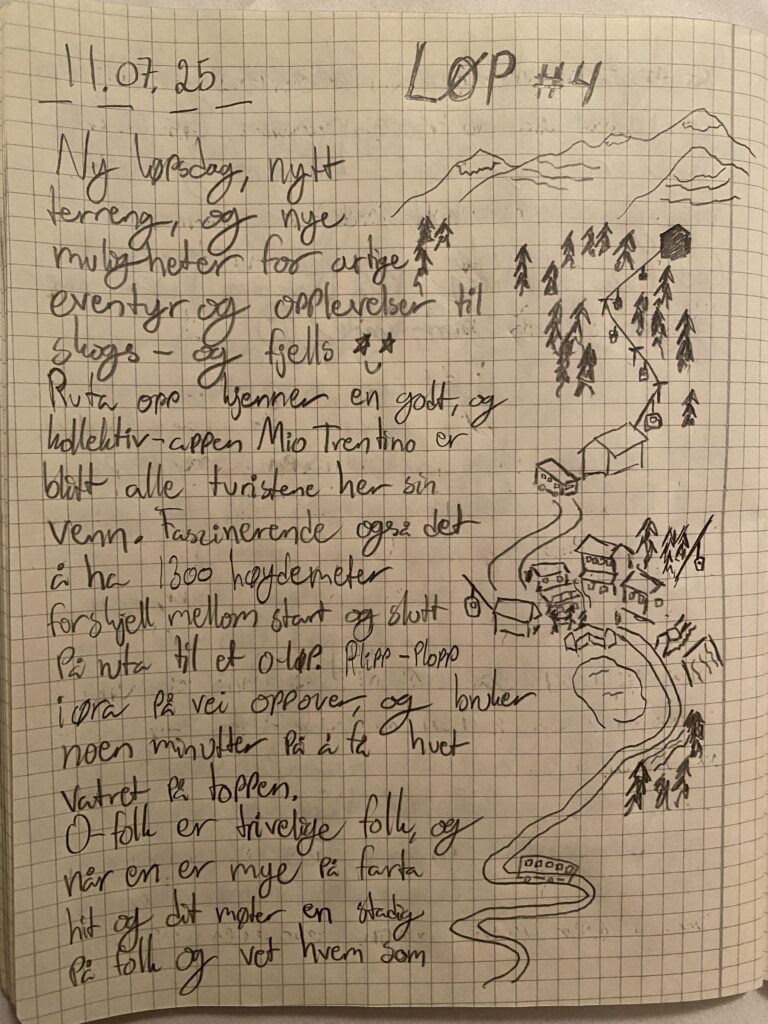 11.07.25
LØP #4
Ny løpsdag, nytt
terreng, og nye
muligheter for artige
eventyr og opplevelser til
skogs- og fjells
Ruta opp kjenner en godt, og
kollektiv-appen Mio Trentino er
blitt alle turistene her sin
venn. Faszinerende også det
å ha 1300 høydemeter
forskjell mellom start og slutt
på ruta til et o-løp. Plipp-Plopp
i øra på vei oppover, og bruker
noen minutter på å få huet
vatret på toppen.
O-folk er trivelige folk, og
når en er mye på farta
hit og dit møter en stadig
på folk og vet hvem som